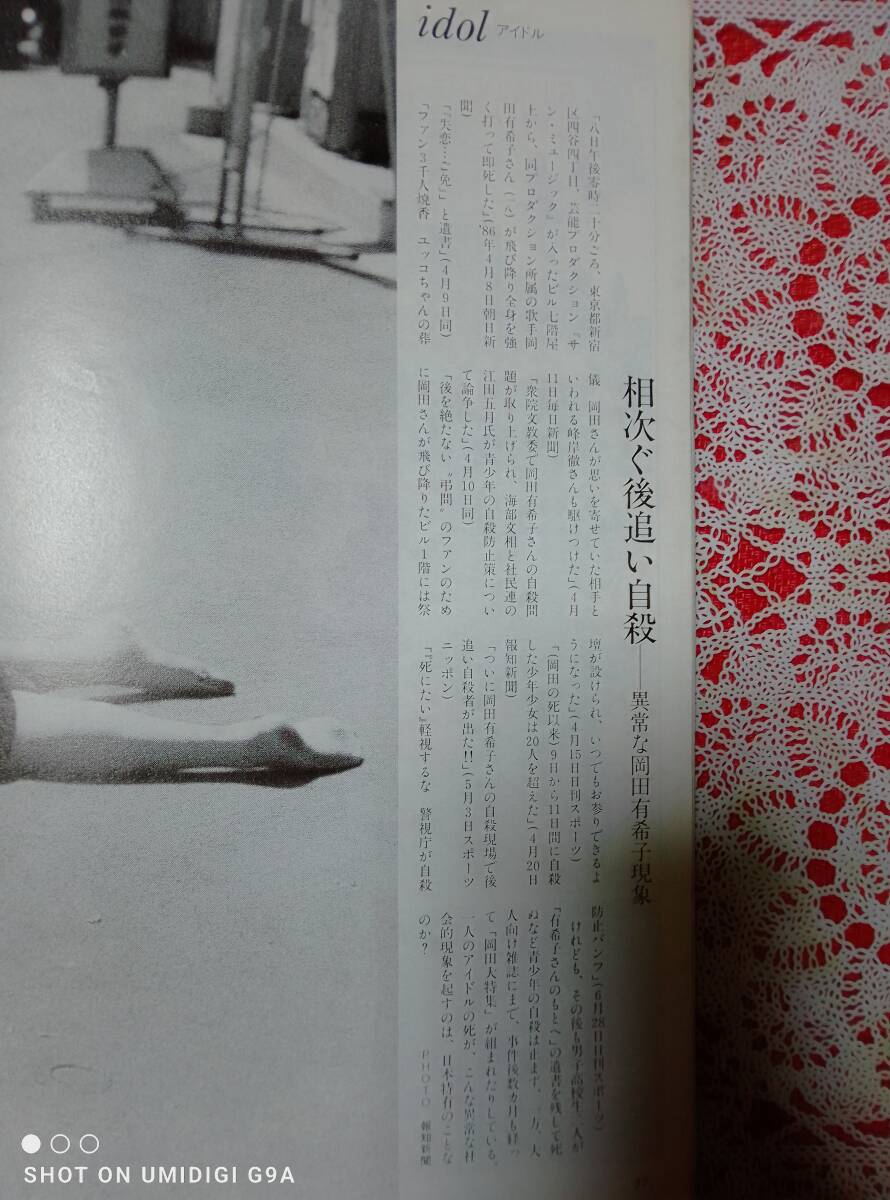 idol アイドル
相次ぐ後追い自殺──異常な岡田有希子現象
「八日午後零時二十分ごろ、東京都新宿
区四谷四丁目、芸能プロダクション『サ
ン・ミュージック』が入ったビル七階屋
上から、同プロダクション所属の歌手岡
田有希子さん(一八)が飛び降り全身を強
く打って即死した」('86年4月8日朝日新
聞)
「『失恋…ご免』と遺書」(4月9日同)
「ファン3千人焼香 ユッコちゃんの葬
儀 岡田さんが思いを寄せていた相手と
いわれる峰岸徹さんも駆けつけた」(4月
11日毎日新聞)
「衆院文教委で岡田有希子さんの自殺問
題が取り上げられ、海部文相と社民連の
江田五月氏が青少年の自殺防止策につい
て論争した」(4月10日同)
「後を絶たない〝弔問〟のファンのため
に岡田さんが飛び降りたビル1階には祭
壇が設けられ、いつでもお参りできるよ
うになった」(4月15日日刊スポーツ)
「(岡田の死以来)9日から11日間に自殺
した少年少女は20人を超えた」(4月20日
報知新聞)
「ついに岡田有希子さんの自殺現場で後
追い自殺者が出た!!」(5月3日スポーツ
ニッポン)
「『死にたい』軽視するな 警視庁が自殺
防止パンフ」(6月28日日刊スポーツ)
けれども、その後も男子高校生二人が
「有希子さんのもとへ」の遺書を残して死
ぬなど青少年の自殺は止まず、一方、大
人向け雑誌にまで、事件後数カ月も経っ
て「岡田大特集」が組まれたりしている。
一人のアイドルの死が、こんな異常な社
会的現象を起すのは、日本特有のことな
のか?
PHOTO 報知新聞
SHOT ON UMIDIGI G9A